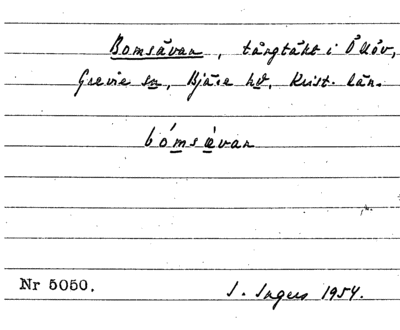 Bomsåvan, tångtäkt i Ö Ulöv,
Grevie sn, Bjäre hd, Krist. län.
bómsèvan
Nr 5050.
I. Ingers 1954.